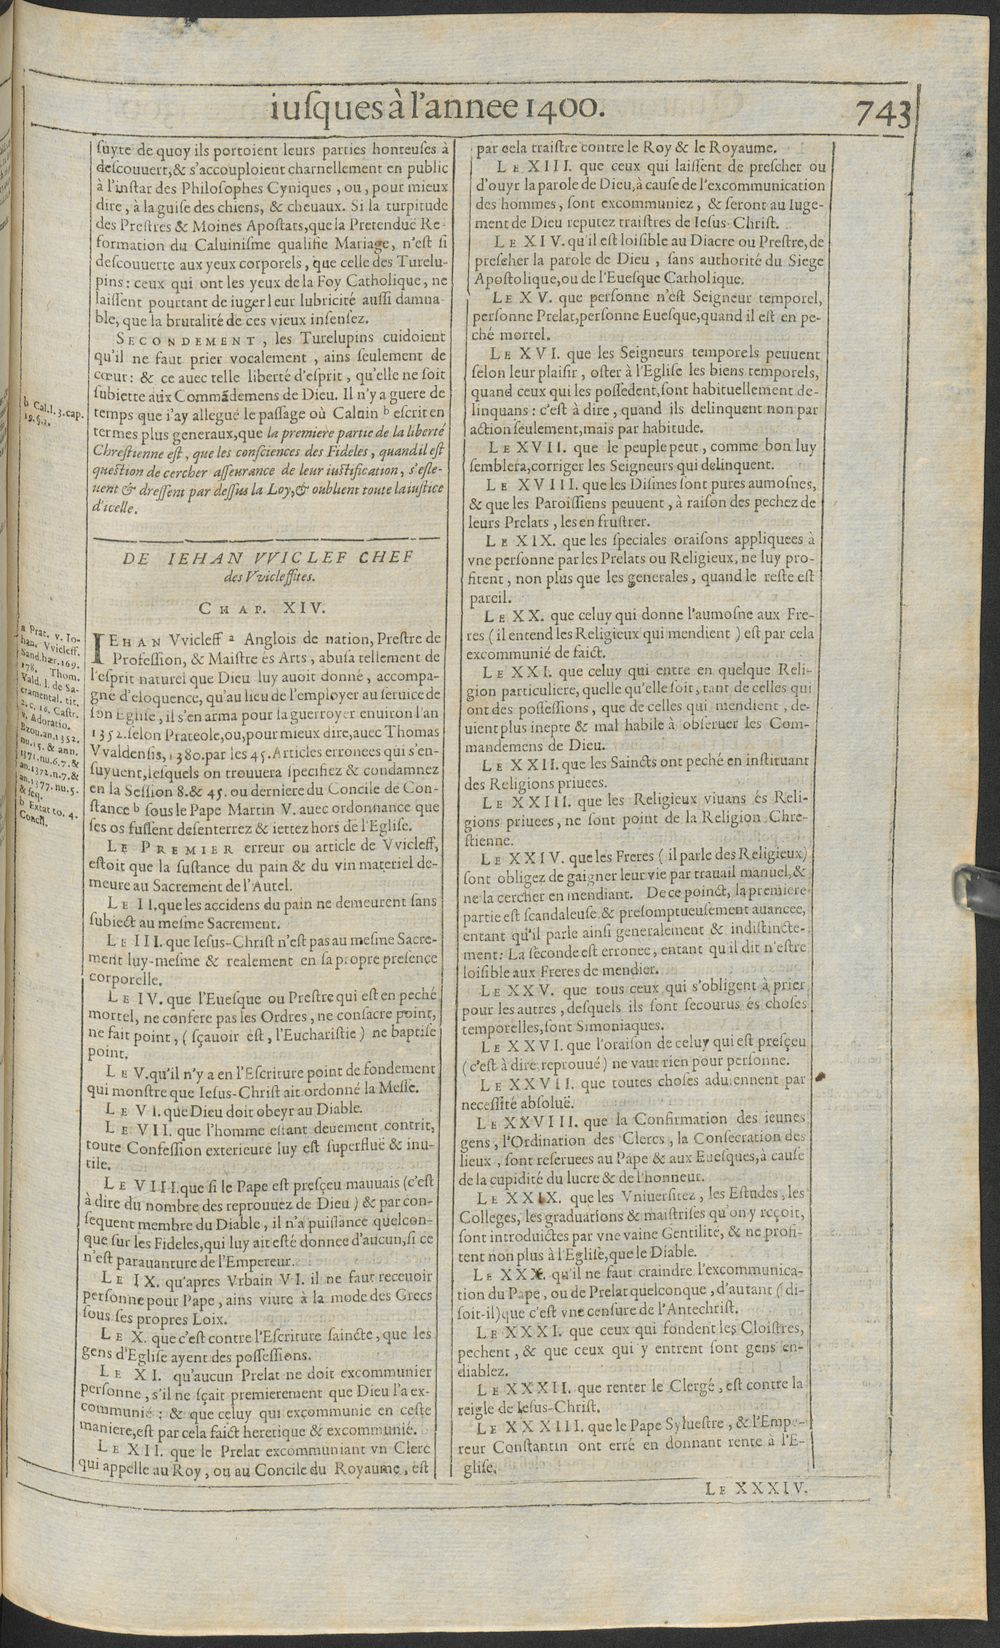 iuſques à l'annee 1400.
743
ſuyte de quoy ils portoient leurs parties honteuſes à
deſcouuert, & s'accouploient charnellement en public
à l'inſtar des Philoſophes Cyniques, ou, pour mieux
dire, à la guiſe des chiens, & cheuaux. Si la turpitude
des Preſtres & Moines Apoſtats, que la Pretenduë Re-
formation du Caluiniſme qualifie Mariage, n'eſt ſi
deſcouuerte aux yeux corporels, que celle des Turelu-
pins: ceux qui ont les yeux de la Foy Catholique, ne
laiſſent pourtant de iuger leur lubricité auſſi damna-
ble, que la brutalité de ces vieux inſenſez.
SECONDEMENT, les Turelupins cuidoient
qu'il ne faut prier vocalement, ains ſeulement de
cœur: & ce auec telle liberté d'eſprit, qu'elle ne ſoit
ſubiette aux Commãdemens de Dieu. Il n'y a guere de
temps que i'ay allegué le paſſage où Caluin b eſcrit en
termes plus generaux, que la premiere partie de la liberté
Chreſtienne eſt, que les conſciences des Fideles, quand il eſt
queſtion de cercher aſſeurance de leur iuſtification, s'eſle-
uent & dreſſent par deſſus la Loy, & oublient toute la iuſtice
d'icelle.
b Cal. l. 3. cap.
19. §. 2.
DE IEHAN VVICLEF CHEF
des Vvicleffites.
CHAP. XIV.
IEHAN Vvicleff a Anglois de nation, Preſtre de
Profeſſion, & Maiſtre es Arts, abuſa tellement de
l'eſprit naturel que Dieu luy auoit donné, accompa-
gné d'eloquence, qu'au lieu de l'employer au ſeruice de
ſon Egliſe, il s'en arma pour la guerroyer enuiron l'an
1352. ſelon Prateole, ou, pour mieux dire, auec Thomas
Vvaldenſis, 1380. par les 45. Articles erronees qui s'en-
ſuyuent, leſquels on trouuera ſpecifiez & condamnez
en la Seſſion 8. & 45. ou derniere du Concile de Con-
ſtance b ſous le Pape Martin V. auec ordonnance que
ſes os fuſſent deſenterrez & iettez hors de l'Egliſe.
a Prat. v. Io-
han. Vvicleff.
Sand. hær. 169.
178. Thom.
Vald. l. de Sa-
cramental. tit.
2. c. 16. Caſtr.
v. Adoratio.
Bzou. an. 1352.
nu. 15. & ann.
1371. nu. 6. 7. &
an. 1372. n. 7. &
an. 1377. nu. 5.
& ſeq.
b Extat to. 4.
Concil.
LE PREMIER erreur ou article de Vvicleff,
eſtoit que la ſuſtance du pain & du vin materiel de-
meure au Sacrement de l'Autel.
LE II. que les accidens du pain ne demeurent ſans
ſubiect au meſme Sacrement.
LE III. que Ieſus-Chriſt n'eſt pas au meſme Sacre-
ment luy-meſme & realement en ſa propre preſence
corporelle.
LE IV. que l'Eueſque ou Preſtre qui eſt en peché
mortel, ne confere pas les Ordres, ne conſacre point,
ne fait point, (ſçauoir eſt, l'Euchariſtie) ne baptiſe
point.
LE V. qu'il n'y a en l'Eſcriture point de fondement
qui monſtre que Ieſus-Chriſt ait ordonné la Meſſe.
LE VI. que Dieu doit obeyr au Diable.
LE VII. que l'homme eſtant deuement contrit,
toute Confeſſion exterieure luy eſt ſuperfluë & inu-
tile.
LE VIII. que ſi le Pape eſt preſçeu mauuais (c'eſt
à dire du nombre des reprouuez de Dieu) & par con-
ſequent membre du Diable, il n'a puiſſance quelcon-
que ſur les Fideles, qui luy ait eſté donnee d'aucun, ſi ce
n'eſt parauanture de l'Empereur.
LE IX. qu'apres Vrbain VI. il ne faut receuoir
perſonne pour Pape, ains viure à la mode des Grecs
ſous ſes propres Loix.
LE X. que c'eſt contre l'Eſcriture ſaincte, que les
gens d'Egliſe ayent des poſſeſſions.
LE XI. qu'aucun Prelat ne doit excommunier
perſonne, s'il ne ſçait premierement que Dieu l'a ex-
communié: & que celuy qui excommunie en ceſte
maniere, eſt par cela faict heretique & excommunié.
LE XII. que le Prelat excommuniant vn Clerc
qui appelle au Roy, ou au Concile du Royaume, eſt
par cela traiſtre contre le Roy & le Royaume.
LE XIII. que ceux qui laiſſent de preſcher ou
d'ouyr la parole de Dieu, à cauſe de l'excommunication
des hommes, ſont excommuniez, & ſeront au Iuge-
ment de Dieu reputez traiſtres de Ieſus-Chriſt.
LE XIV. qu'il eſt loiſible au Diacre ou Preſtre, de
preſcher la parole de Dieu, ſans authorité du Siege
Apoſtolique, ou de l'Eueſque Catholique.
LE XV. que perſonne n'eſt Seigneur temporel,
perſonne Prelat, perſonne Eueſque, quand il eſt en pe-
ché mortel.
LE XVI. que les Seigneurs temporels peuuent
ſelon leur plaiſir, oſter à l'Egliſe les biens temporels,
quand ceux qui les poſſedent, ſont habituellement de-
linquans: c'eſt à dire, quand ils delinquent non par
action ſeulement, mais par habitude.
LE XVII. que le peuple peut, comme bon luy
ſemblera, corriger les Seigneurs qui delinquent.
LE XVIII. que les Diſmes ſont pures aumoſnes,
& que les Paroiſſiens peuuent, à raiſon des pechez de
leurs Prelats, les en fruſtrer.
LE XIX. que les ſpeciales oraiſons appliquees à
vne perſonne par les Prelats ou Religieux, ne luy pro-
fitent, non plus que les generales, quand le reſte eſt
pareil.
LE XX. que celuy qui donne l'aumoſne aux Fre-
res (il entend les Religieux qui mendient) eſt par cela
excommunié de faict.
LE XXI. que celuy qui entre en quelque Reli-
gion particuliere, quelle qu'elle ſoit, tant de celles qui
ont des poſſeſſions, que de celles qui mendient, de-
uient plus inepte & mal habile à obſeruer les Com-
mandemens de Dieu.
LE XXII. que les Saincts ont peché en inſtituant
des Religions priuees.
LE XXIII. que les Religieux viuans és Reli-
gions priuees, ne ſont point de la Religion Chre-
ſtienne.
LE XXIV. que les Freres (il parle des Religieux)
ſont obligez de gaigner leur vie par trauail manuel, &
ne la cercher en mendiant. De ce poinct, la premiere
partie eſt ſcandaleuſe & preſomptueuſement auancee,
entant qu'il parle ainſi generalement & indiſtincte-
ment: La ſeconde eſt erronee, entant qu'il dit n'eſtre
loiſible aux Freres de mendier.
LE XXV. que tous ceux qui s'obligent à prier
pour les autres, deſquels ils ſont ſecourus és choſes
temporelles, ſont Simoniaques.
LE XXVI. que l'oraiſon de celuy qui eſt preſçeu
(c'eſt à dire reprouué) ne vaut rien pour perſonne.
LE XXVII. que toutes choſes aduiennent par
neceſſité abſoluë.
LE XXVIII. que la Confirmation des ieunes
gens, l'Ordination des Clercs, la Conſecration des
lieux, ſont reſeruees au Pape & aux Eueſques, à cauſe
de la cupidité du lucre & de l'honneur.
LE XXIX. que les Vniuerſitez, les Eſtudes, les
Colleges, les graduations & maiſtriſes qu'on y reçoit,
ſont introduictes par vne vaine Gentilité, & ne profi-
tent non plus à l'Egliſe, que le Diable.
LE XXX. qu'il ne faut craindre l'excommunica-
tion du Pape, ou de Prelat quelconque, d'autant (di-
ſoit-il) que c'eſt vne cenſure de l'Antechriſt.
LE XXXI. que ceux qui fondent les Cloiſtres,
pechent, & que ceux qui y entrent ſont gens en-
diablez.
LE XXXII. que renter le Clergé, eſt contre la
reigle de Ieſus-Chriſt.
LE XXXIII. que le Pape Sylueſtre, & l'Empe-
reur Conſtantin ont erré en donnant rente à l'E-
gliſe.
LE XXXIV.